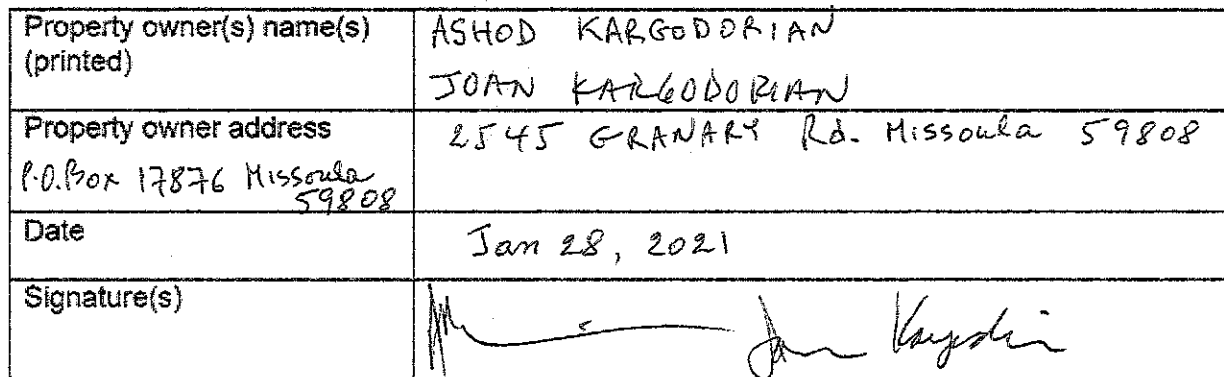 Property owner(s) name(s)
(printed)
ASHOD KARGODORIAN
JOAN KARGODORIAN
Property owner address
P.O.Box 17876 Missoula
59808
2545 GRANARY Rd. Missoula 59808
Date
Jan 28, 2021
Signature(s)